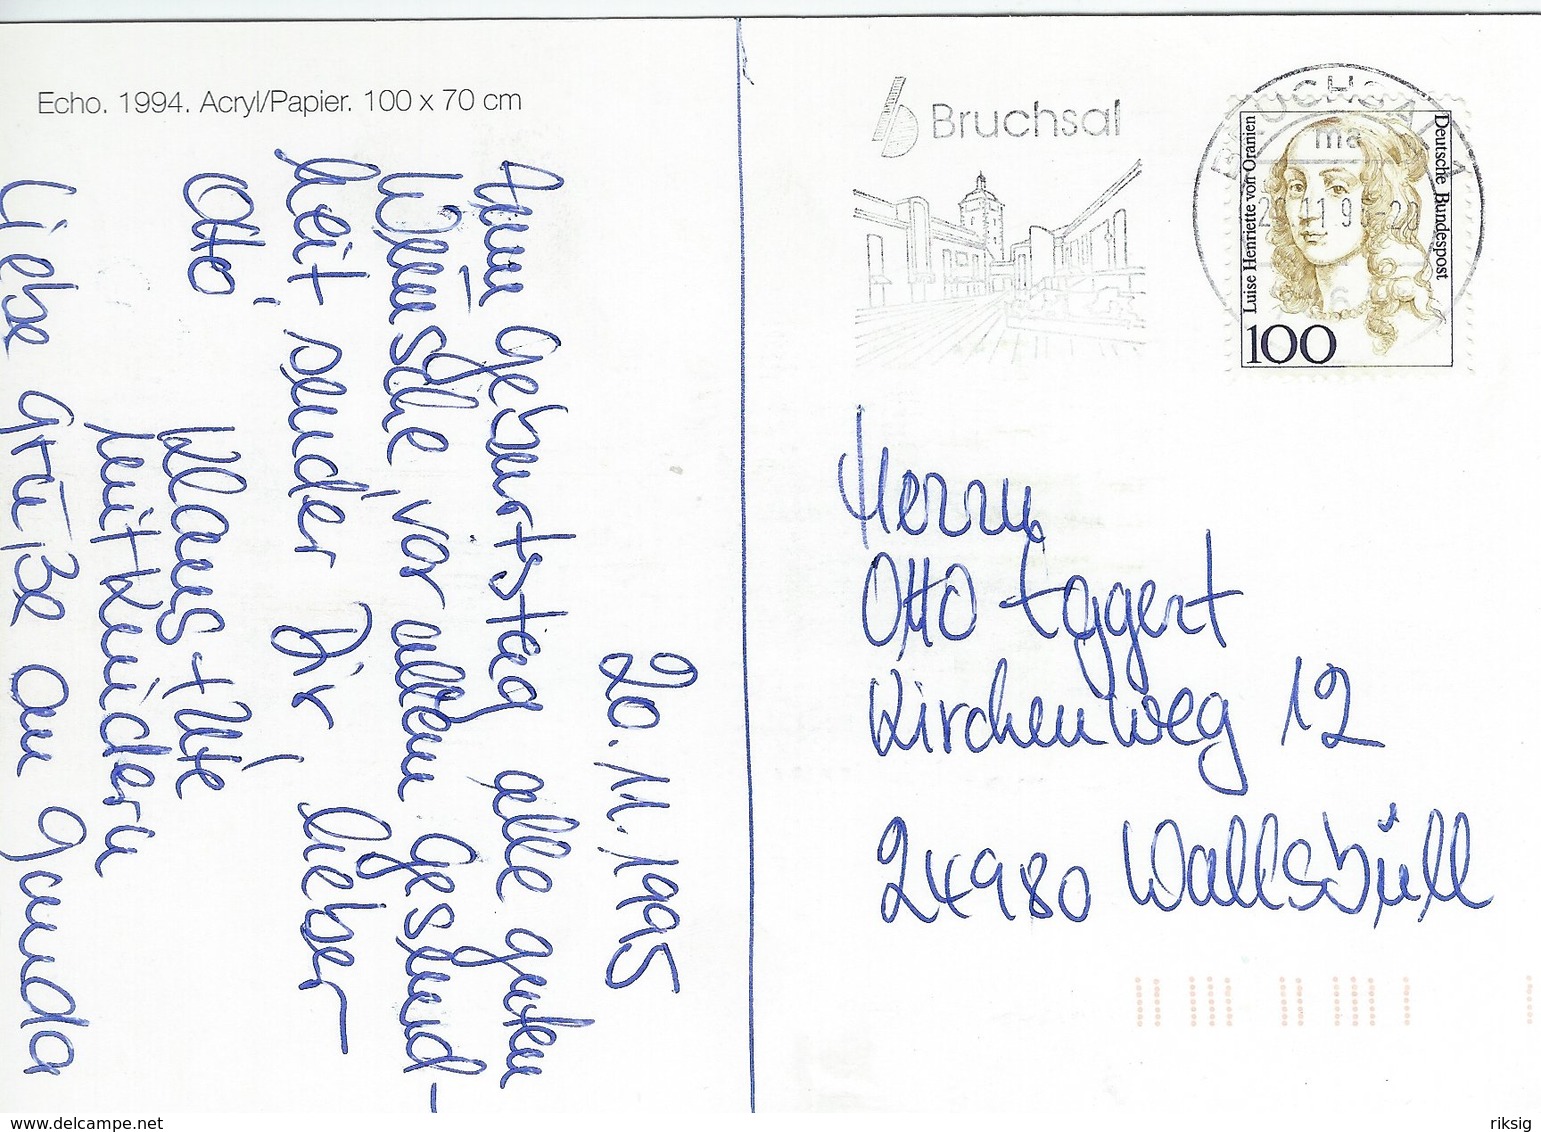 Echo. 1994. Acryl/Papier. 100 x 70 cm
20.11.1995
Zum Geburtstag alle guten
Wünsche, vor allem Gesund-
heit, sendet Dir, lieber
Otto,
Klaus + Ute
mit Kindern
Liebe Grüße an Gunda
Bruchsal
BRUCHSAL 1
ma
Deutsche Bundespost
Luise Henriette von Oranien
100
Herrn
Otto Eggert
Kirchenweg 12
24980 Wallsbüll
www.delcampe.net
riksig